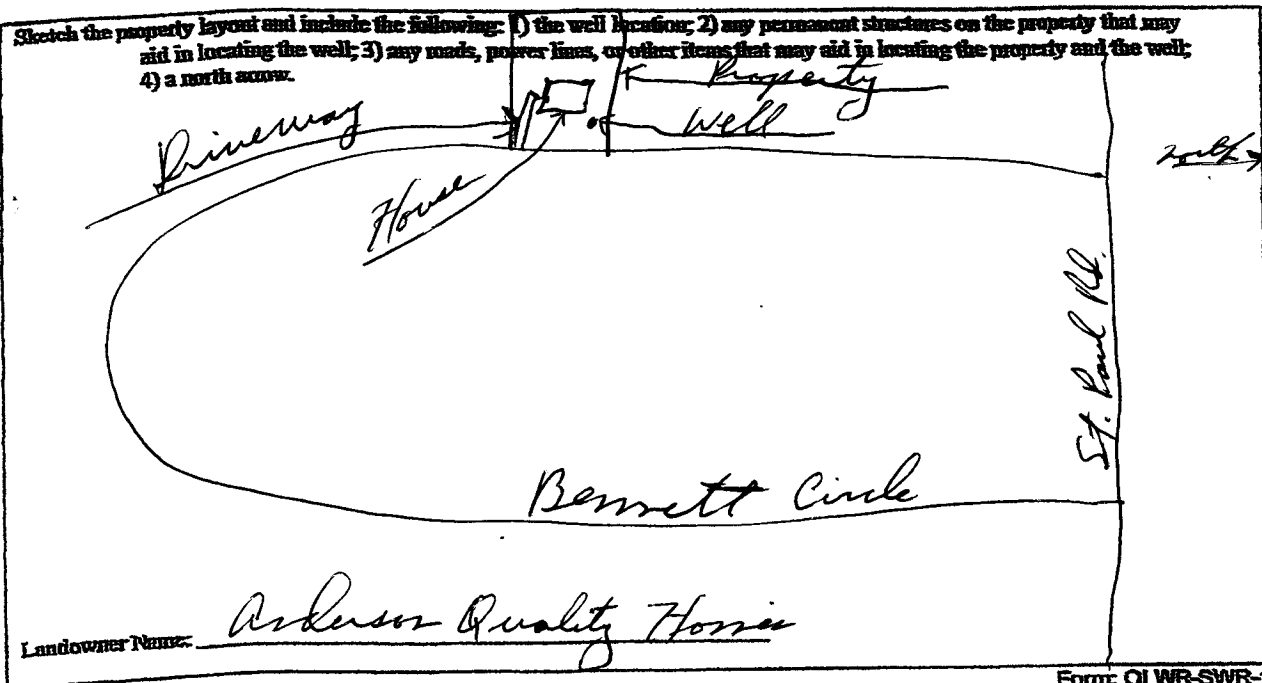 Sketch the property layout and include the following: 1) the well location; 2) any permanent structures on the property that may
aid in locating the well; 3) any roads, power lines, or other items that may aid in locating the property and the well;
4) a north arrow.
Property
Driveway
Well
north
House
St. Paul Rd.
Bennett Circle
Landowner Name: Anderson Quality Homes
Form: OLWR-SWR-